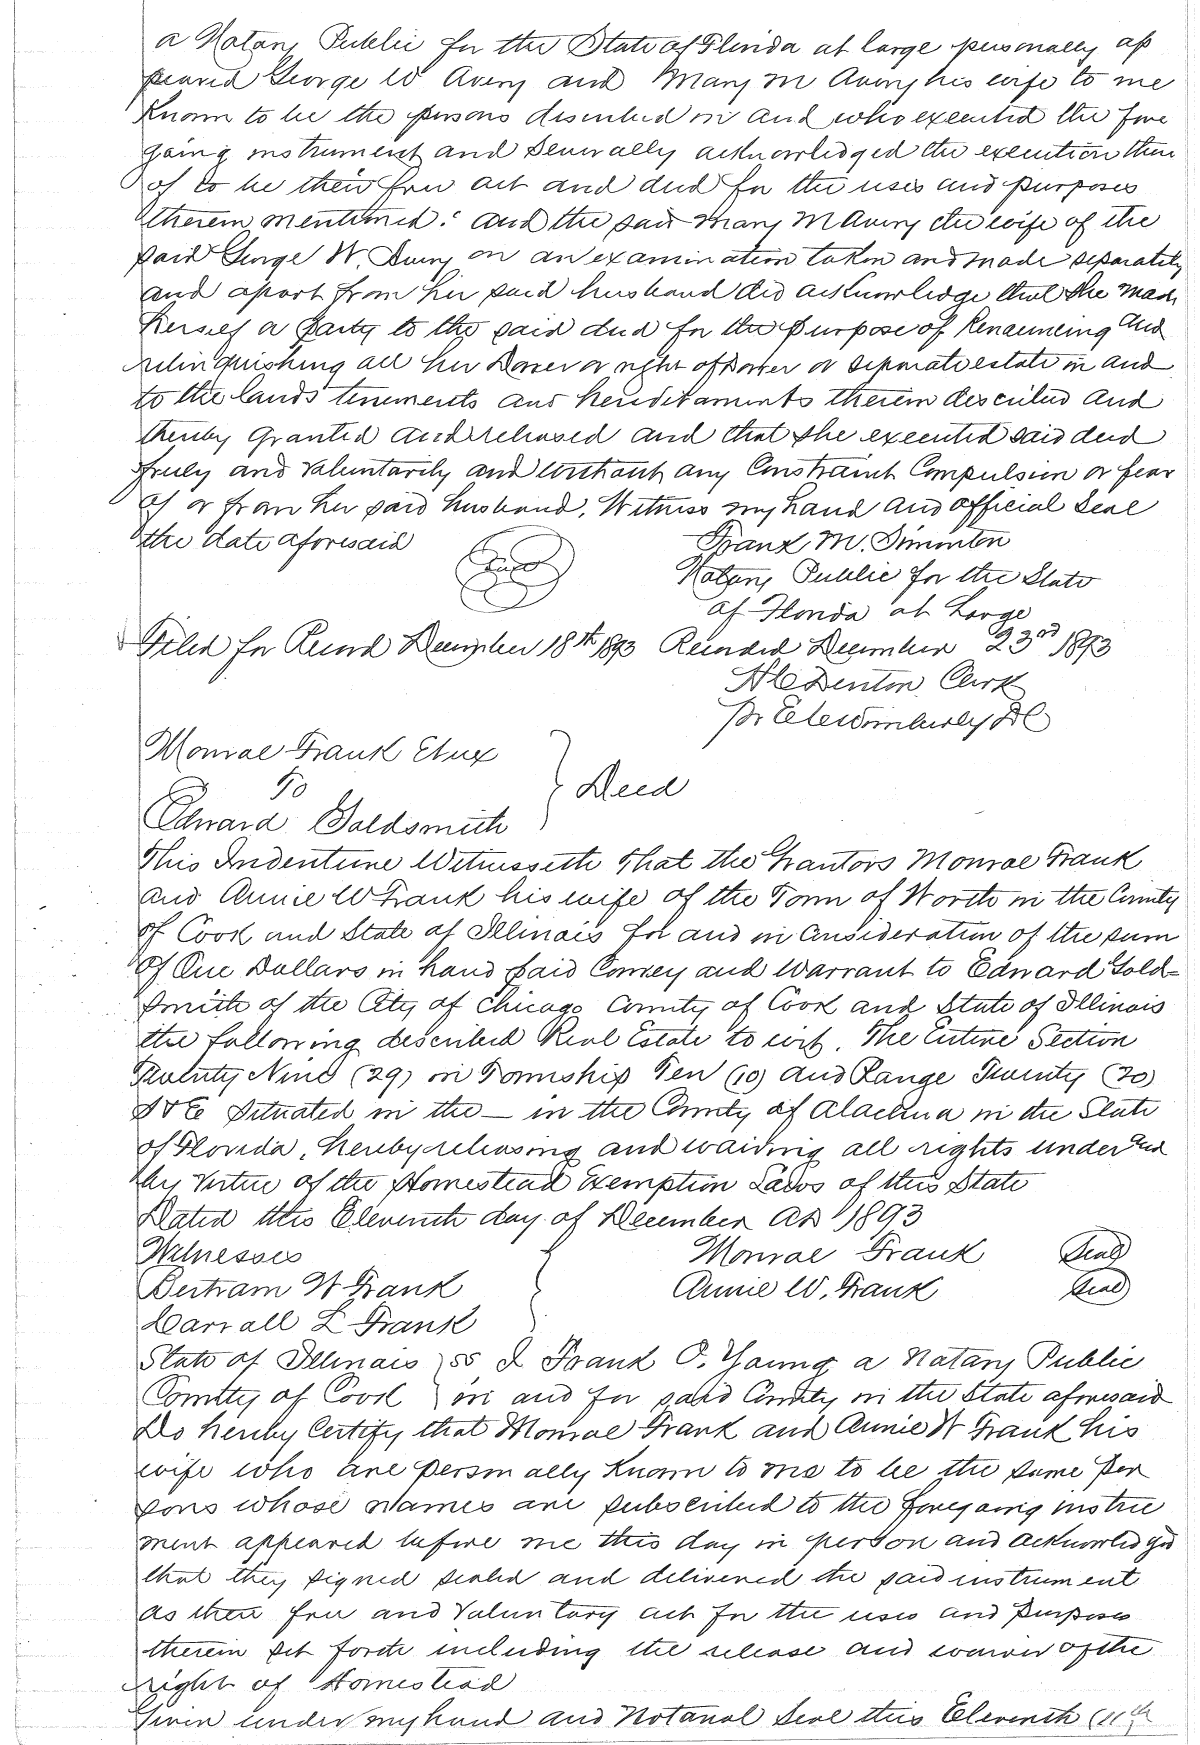 a Notary Public for the State of Florida at large personally ap
peared George W Avery and Mary M Avery his wife to me
Known to be the persons described in and who executed the fore
going instrument and severally acknowledged the execution there
of to be their free act and deed for the uses and purposes
therein mentioned: and the said Mary M Avery the wife of the
said George W. Avery on an examination taken and made separately
and apart from her said husband did acknowledge that she made
herself a party to the said deed for the purpose of Renouncing and
relinquishing all her Dower or right of Dower or separate estate in and
to the lands tenements and hereditaments therein described and
thereby granted and released and that she executed said deed
freely and voluntarily and without any Constraint Compulsion or fear
of or from her said husband. Witness my hand and official Seal
the date aforesaid
Seal
Frank M. Simonton
Notary Public for the State
of Florida at Large
Filed for Record December 18th 1893 Recorded December 23rd 1893
H C Denton Clerk
pr E C Wimberly DC
Monroe Frank Etux
To
Edward Goldsmith
} Deed
This Indenture Witnesseth That the Grantors Monroe Frank
and Annie W Frank his wife of the Town of Worth in the County
of Cook and State of Illinois for and in consideration of the sum
of One Dollars in hand paid Convey and Warrant to Edward Gold=
smith of the City of Chicago County of Cook and State of Illinois
the following described Real Estate to wit. The Entire Section
Twenty Nine (29) in Township Ten (10) and Range Twenty (20)
S & E situated in the — in the County of Alachua in the State
of Florida, hereby releasing and waiving all rights under and
by virtue of the Homestead Exemption Laws of this State
Dated this Eleventh day of December AD 1893
Witnesses Monroe Frank Seal
Bertram W Frank Annie W. Frank Seal
Carrall L Frank
State of Illinois } ss I Frank O. Young a Notary Public
County of Cook } in and for said County in the State aforesaid
Do hereby Certify that Monroe Frank and Annie W Frank his
wife who are personally Known to me to be the same per
sons whose names are subscribed to the foregoing instru
ment appeared before me this day in person and acknowledged
that they signed sealed and delivered the said instrument
as their free and voluntary act for the uses and purposes
therein set forth including the release and waiver of the
right of Homestead
Given under my hand and Notarial Seal this Eleventh (11th